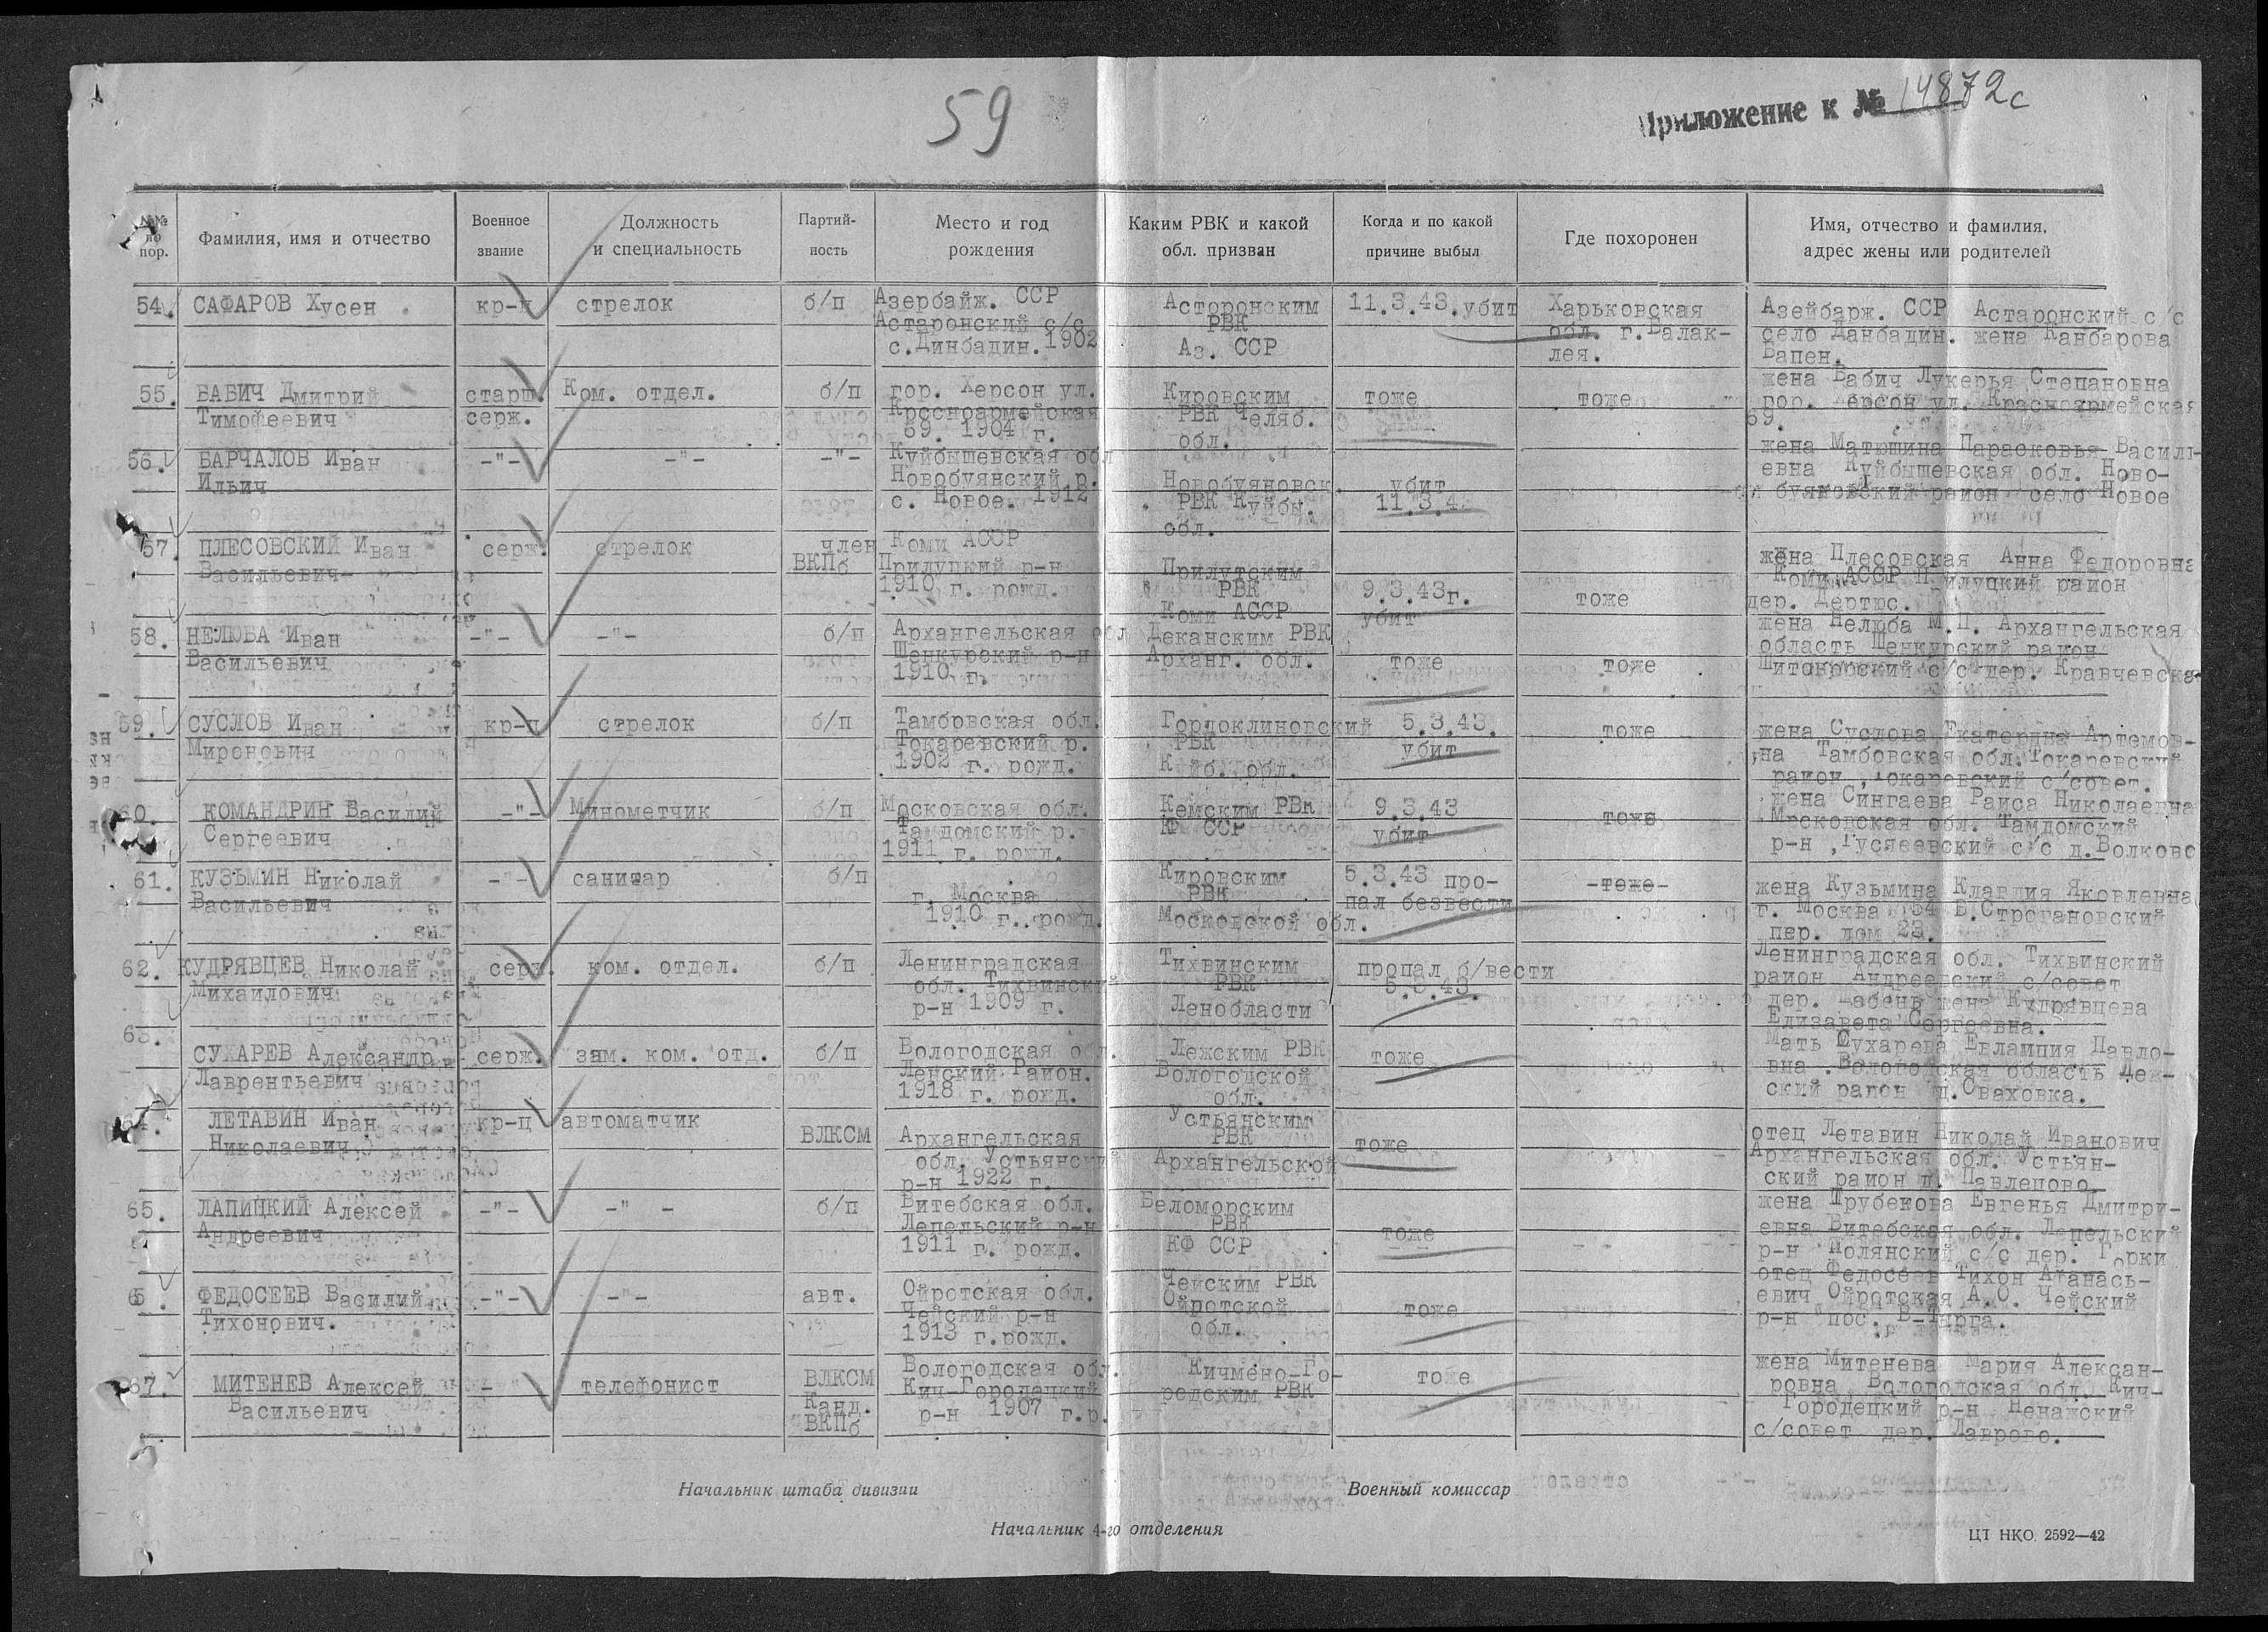 59
Приложение к № 14872с
№№ по пор.
Фамилия, имя и отчество
Военное звание
Должность и специальность
Партий-ность
Место и год рождения
Каким РВК и какой обл. призван
Когда и по какой причине выбыл
Где похоронен
Имя, отчество и фамилия, адрес жены или родителей
54. САФАРОВ Хусен кр-ц стрелок б/п Азербайж. ССР Асторонским 11.3.43.убит Харьковская Азейбарж. ССР Астаронский с/с
Астаронский с/с РВК обл. г.Балак- село Данбадин. жена Канбарова
с.Динбадин.1902 Аз. ССР лея. Вапен.
55. БАБИЧ Дмитрий старш. Ком. отдел. б/п гор. Херсон ул. Кировским тоже тоже жена Бабич Лукерья Степановна
Тимофеевич серж. Красноармейская РВК Челяб. гор. Херсон ул. Красноармейская
69. 1904 г. обл. 69.
56. БАРЧАЛОВ Иван -"- -"- -"- Куйбышевская обл жена Матюшина Парасковья Василь-
Ильич Новобуянский р. Новобуяновск. убит евна Куйбышевская обл. Ново-
с. Новое. 1912 РВК Куйбы. 11.3.4 буяновский район село Новое
обл.
57. ПЛЕСОВСКИЙ Иван серж. стрелок член Коми АССР жена Плесовская Анна Федоровна
Васильевич ВКПб Прилуцкий р-н Прилутским Коми АССР Прилуцкий район
1910 г. рожд. РВК 9.3.43г. тоже дер. Дертюс.
Коми АССР убит
58. НЕЛЮБА Иван -"- -"- б/п Архангельская обл Деканским РВК жена Нелюба М.П. Архангельская
Васильевич Шенкурский р-н Арханг. обл. тоже тоже область Шенкурский район
1910 г. с/с дер. Кравчевская
59. СУСЛОВ Иван кр-ц стрелок б/п Тамбовская обл. Гордоклиновский 5.3.43. тоже жена Суслова Екатерина Артемов-
Миронович Токаревский р. РВК убит на Тамбовская обл.Токаревский
1902 г. рожд. обл. район, Токаревский с/совет.
60. КОМАНДРИН Василий -"- Минометчик б/п Московская обл. Кемским РВК 9.3.43 тоже жена Сингаева Раиса Николаевна
Сергеевич Тамдомский р. КФ ССР убит Московская обл. Тамдомский
1911 г. рожд. р-н, Гусяеевский с/с д.Волково
61. КУЗЬМИН Николай -"- санитар б/п г. Москва Кировским 5.3.43 про- -тоже- жена Кузьмина Клавдия Яковлевна
Васильевич 1910 г. рожд. РВК пал безвести г. Москва 54 Б.Строгановский
Московской обл. пер. дом 23.
62. КУДРЯВЦЕВ Николай серж. ком. отдел. б/п Ленинградская Тихвинским пропал б/вести Ленинградская обл. Тихвинский
Михайлович обл. Тихвинский РВК 5.3.43. район Андреевский с/совет
р-н 1909 г. Ленобласти дер. жена Кудрявцева
Елизавета Сергеевна.
63. СУХАРЕВ Александр серж. зам. ком. отд. б/п Вологодская обл. Лежским РВК тоже Мать Сухарева Евлампия Павло-
Лаврентьевич Район. Вологодской вна. Вологодская область Леж-
1918 г. рожд. обл. ский район д.Сваховка.
64. ЛЕТАВИН Иван кр-ц автоматчик ВЛКСМ Архангельская Устьянским тоже отец Летавин Николай Иванович
Николаевич обл. Устьянский РВК Архангельская обл. Устьян-
р-н 1922 г. Архангельской ский район д. Павлецово.
65. ЛАПИЦКИЙ Алексей -"- -"- б/п Витебская обл. Беломорским тоже жена Трубекова Евгенья Дмитри-
Андреевич Лепельский р-н РВК евна Витебская обл. Лепельский
1911 г. рожд. КФ ССР р-н Полянский с/с дер. Горки
6 . ФЕДОСЕЕВ Василий -"- -"- авт. Ойротская обл. Чейским РВК тоже отец Федосеев Тихон Афанась-
Тихонович. Чейский р-н Ойротской евич Ойротская А.О. Чейский
1913 г.рожд. обл. р-н пос. В-Тырга.
67. МИТЕНЕВ Алексей -"- телефонист ВЛКСМ Вологодская обл. Кичмено-Го- тоже жена Митенева Мария Алексан-
Васильевич Канд. Кич-Городецкий родским РВК ровна Вологодская обл. Кич-
ВКПб р-н 1907 г.р. Городецкий р-н Ненажский
с/совет дер. Лаврово.
Начальник штаба дивизии
Военный комиссар
Начальник 4-го отделения
ЦТ НКО. 2592—42